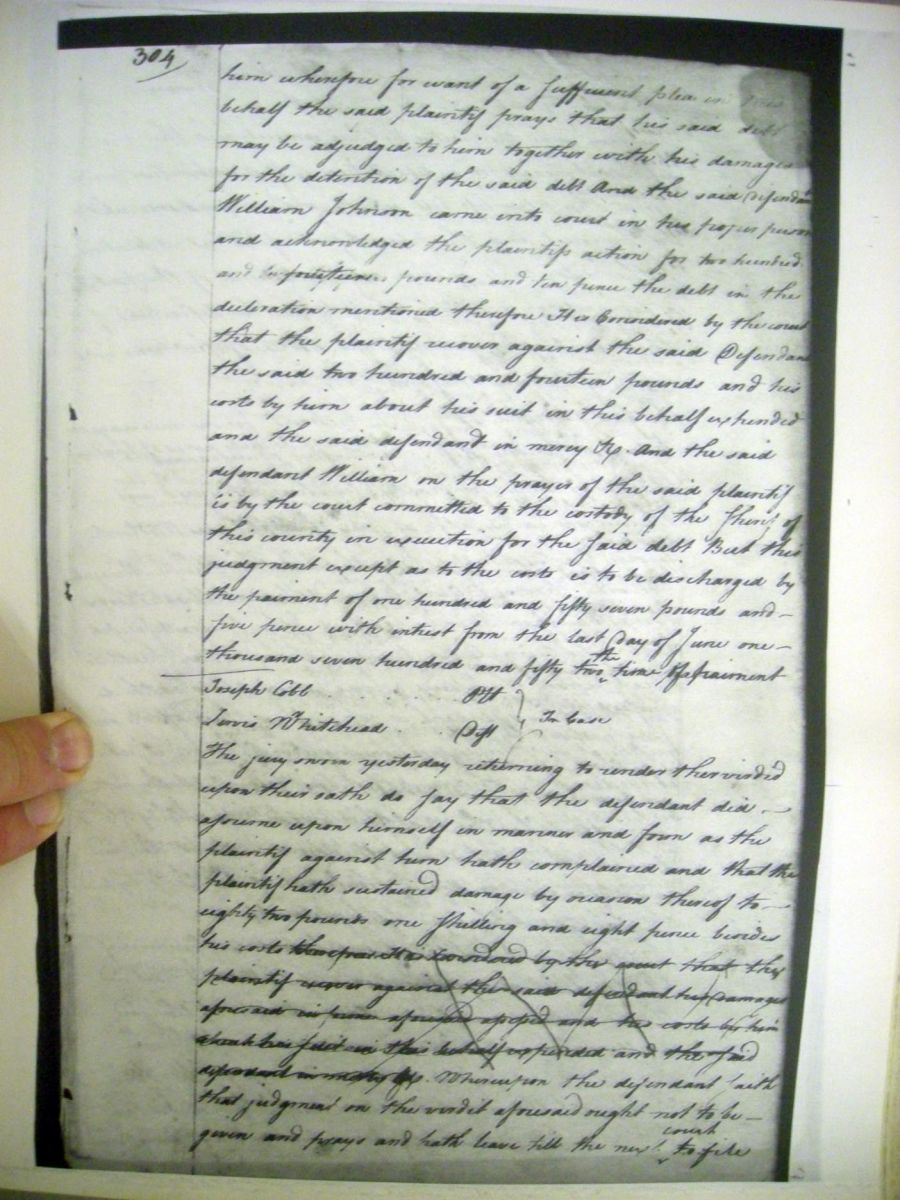 304
him wherefore for want of a sufficient plea in this
behalf the said plaintif prays that his said debt
may be adjudged to him together with his damages
for the detention of the said debt And the said Defendant
William Johnson came into court in his proper person
and acknowledged the plaintifs action for two hundred
and fourteen pounds and ten pence the debt in the
decleration mentioned therefore It is Considered by the court
that the plaintif recover against the said Defendant
the said two hundred and fourteen pounds and his
costs by him about his suit in this behalf expended
and the said defendant in mercy &c. And the said
defendant William on the prayer of the said plaintif
is by the court committed to the custody of the Sherif of
this county in execution for the said debt But this
judgment except as to the costs is to be discharged by
the paiment of one hundred and fifty seven pounds and
five pence with intrest from the last Day of June one
thousand seven hundred and fifty two the time of paiment
Joseph Cobb Plt
In Case
Whitehead Deft
The jury sworn yesterday returning to render their virdid
upon their oath do say that the defendant did
assume upon himself in manner and form as the
plaintif against him hath complained and that the
plaintif hath sustained damage by reason thereof to
eighty two pounds one shilling and eight pence besides
his costs therefore It is Considered by the court that the
plaintif recover against the said defendant his Damages
aforesaid in form aforesaid assessed and his costs by him
about his suit in this behalf expended and the said
defendant in mercy &c. Whereupon the defendant saith
that judgment on the virdit aforesaid ought not to be
given and prays and hath leave till the next court to file